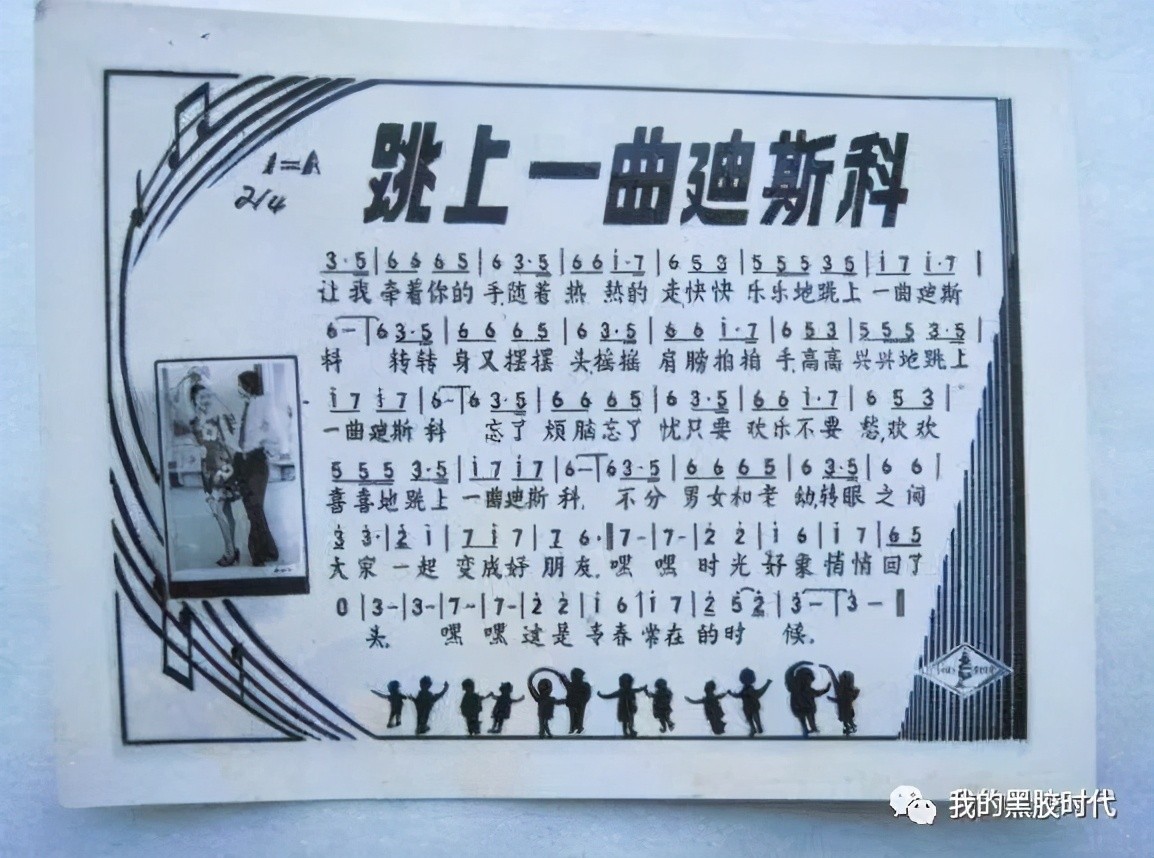 跳上一曲迪斯科
1=A
2/4
3·5|6 6 6 5|6 3·5|6 6 i·7|6 5 3|5 5 5 3 5|i 7 i·7|
让我牵着你的手,随着热热的走,快快乐乐地跳上一曲迪斯
6-|6 3·5|6 6 6 5|6 3·5|6 6 i·7|6 5 3|5 5 5 3·5|
科 转转身又摆摆头,摇摇肩膀拍拍手,高高兴兴地跳上
i 7 i 7|6-|6 3·5|6 6 6 5|6 3·5|6 6 i·7|6 5 3|
一曲迪斯科 忘了烦脑忘了忧只要欢乐不要愁,欢欢
5 5 5 3·5|i 7 i 7|6-|6 3·5|6 6 6 5|6 3·5|6 6|
喜喜地跳上一曲迪斯科,不分男女和老幼,转眼之间
3 3·|2 i|7 i 7|7 6·‖7-|7-|2 2|i 6|i 7|6 5
大家一起变成好朋友,嘿嘿时光好象悄悄回了
0|3-|3-|7-|7-|2 2|i 6|i 7|2 5 2|3-|3-‖
头,嘿嘿这是青春常在的时候。
我的黑胶时代